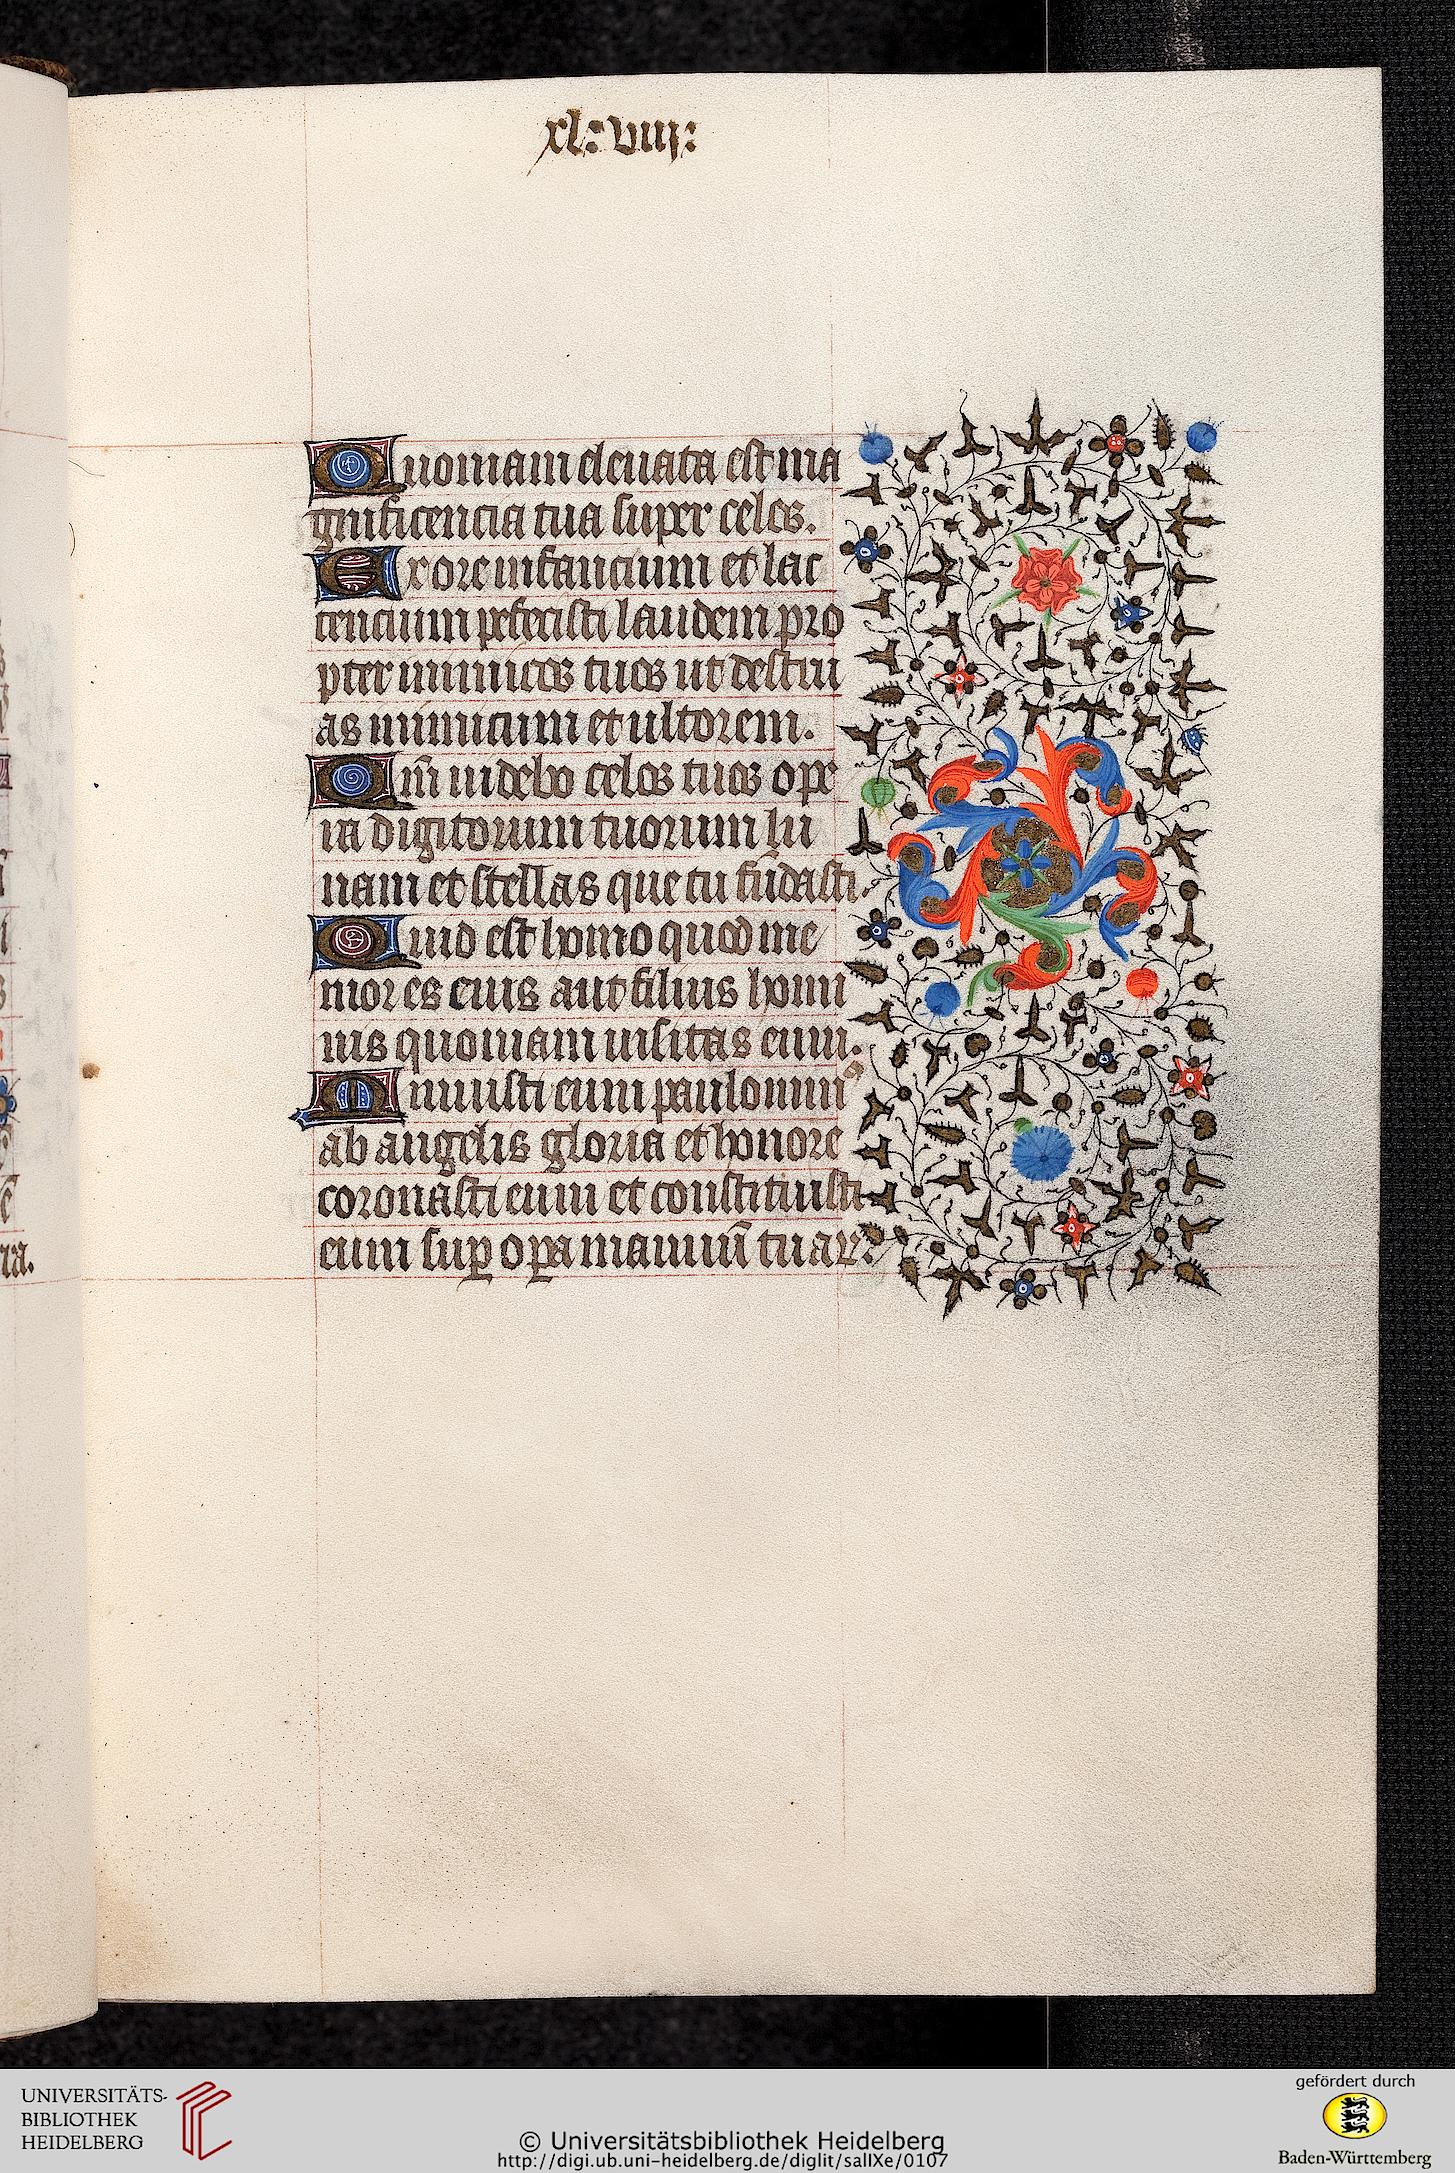 xl: viij:
Quoniam eleuata est ma
gnificencia tua super celos.
Ex ore infancium et lac
tencium perfecisti laudem pro
pter inimicos tuos ut destru
as inimicum et ultorem.
Qm̄ uidebo celos tuos ope
ra digitorum tuorum lu
nam et stellas que tu fūdasti.
Quid est homo quod me
mor es eius aut filius homi
nis quoniam uisitas eum.
Minuisti eum paulominꝰ
ab angelis gloria et honore
coronasti eum et constituisti
eum suꝑ oꝑa manuū tuaꝝ:
ra.
UNIVERSITÄTS-
BIBLIOTHEK
HEIDELBERG
© Universitätsbibliothek Heidelberg
http://digi.ub.uni-heidelberg.de/diglit/salIXe/0107
gefördert durch
Baden-Württemberg